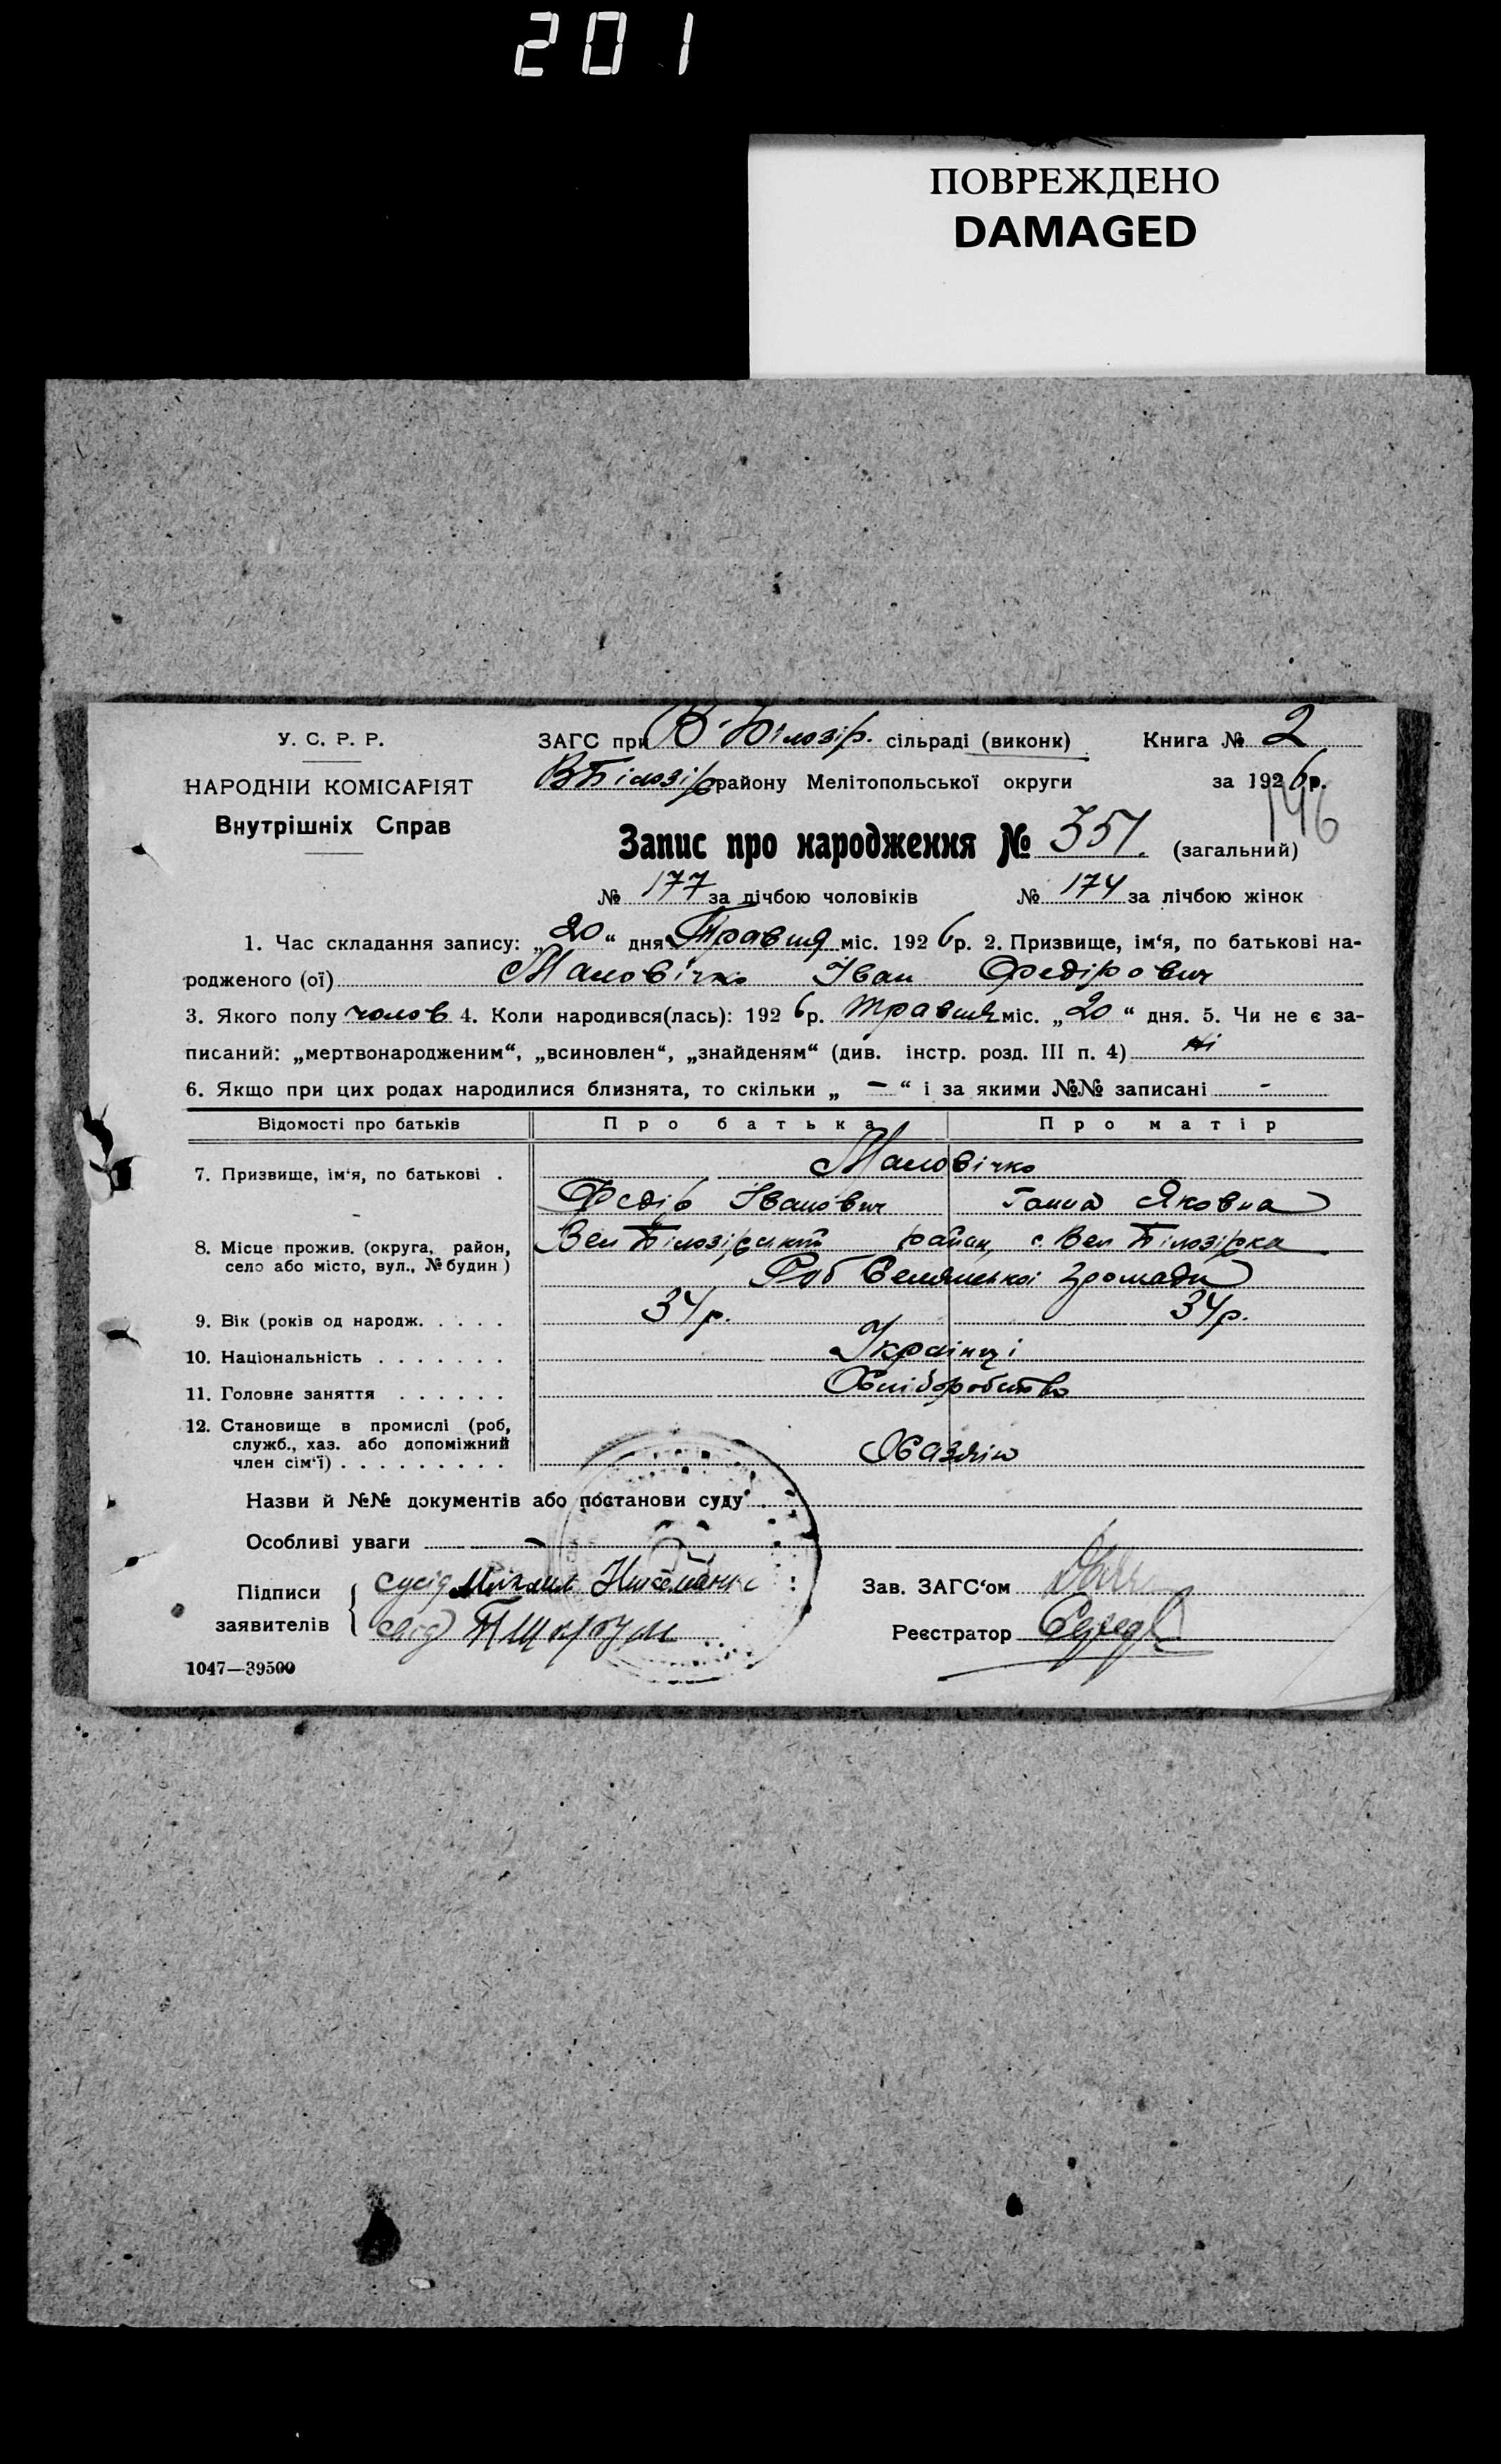 201
ПОВРЕЖДЕНО
DAMAGED
У. С. Р. Р.
НАРОДНІЙ КОМІСАРІЯТ
Внутрішніх Справ
ЗАГС при В-Білозір. сільраді (виконк) Книга № 2
ВБілозір району Мелітопольської округи за 1926р.
146
Запис про народження № 351. (загальний)
№ 177 за лічбою чоловіків № 174 за лічбою жінок
1. Час складання запису: „20“ дня Травня міс. 1926р. 2. Призвище, ім‘я, по батькові на-
родженого (ої) Маловічко Іван Федірович
3. Якого полу чолов 4. Коли народився(лась): 1926р. травня міс. „20“ дня. 5. Чи не є за-
писаний: „мертвонародженим“, „всиновлен“, „знайденям“ (див. інстр. розд. III п. 4) ні
6. Якщо при цих родах народилися близнята, то скільки „ — “ і за якими №№ записані -
Відомості про батьків Про батька Про матір
7. Призвище, ім‘я, по батькові . Маловічко
Федір Іванович Ганна Яковна
8. Місце прожив. (округа, район,
село або місто, вул., № будин) Вел Білозірський район, с. Вел Білозірка
Селянської громади
9. Вік (років од народж. . . . . 34р. 34р.
10. Національність . . . . . . . Українці
11. Головне заняття . . . . . . Хліборобство
12. Становище в промислі (роб,
служб., хаз. або допоміжний
член сім‘ї) . . . . . . . . . Хазяін
Назви й №№ документів або постанови суду
Особливі уваги
Підписи
заявителів
сусід
Зав. ЗАГС‘ом
Реєстратор
1047—39500